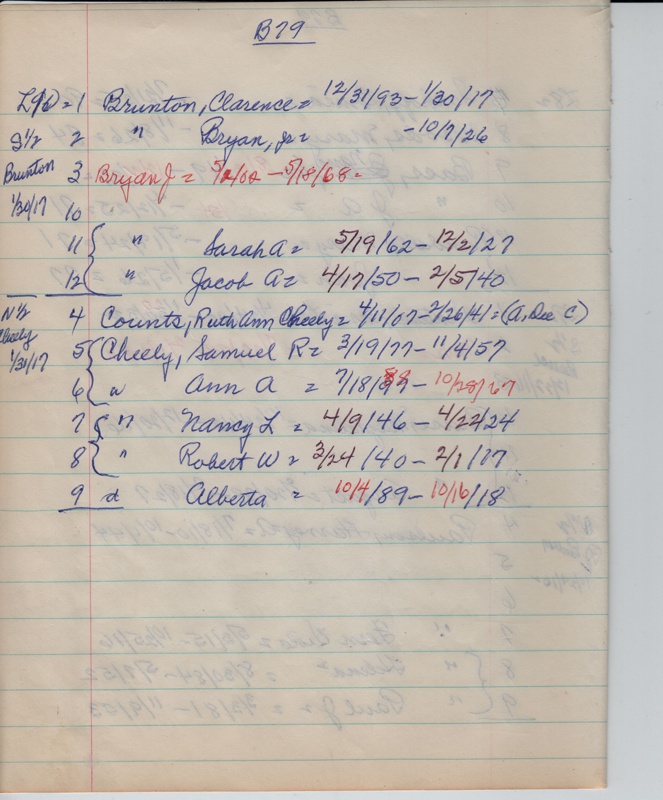 B79
1 Brunton, Clarence = 12/31/93 - 1/30/17
S 1/2 2 " Bryan, Jr = - 10/7/26
Brunton 3 Bryan J = 5/2/02 - 5/18/68 =
1/30/17 10 "
11 { " Sarah A = 5/19/62 - 12/2/27
12 { " Jacob A = 4/17/50 - 2/5/40
N 1/2 4 Counts, Ruth Ann Cheely = 4/11/07 - 2/26/41 = (A, Dec C)
Cheely 5 { Cheely, Samuel R = 3/19/77 - 11/4/57
1/31/17
6 { " Ann A = 7/18/89 - 10/28/67
7 { " Nancy L = 4/9/46 - 4/22/24
8 { " Robert W = 3/24/40 - 2/1/17
9 Alberta = 10/4/89 - 10/16/18